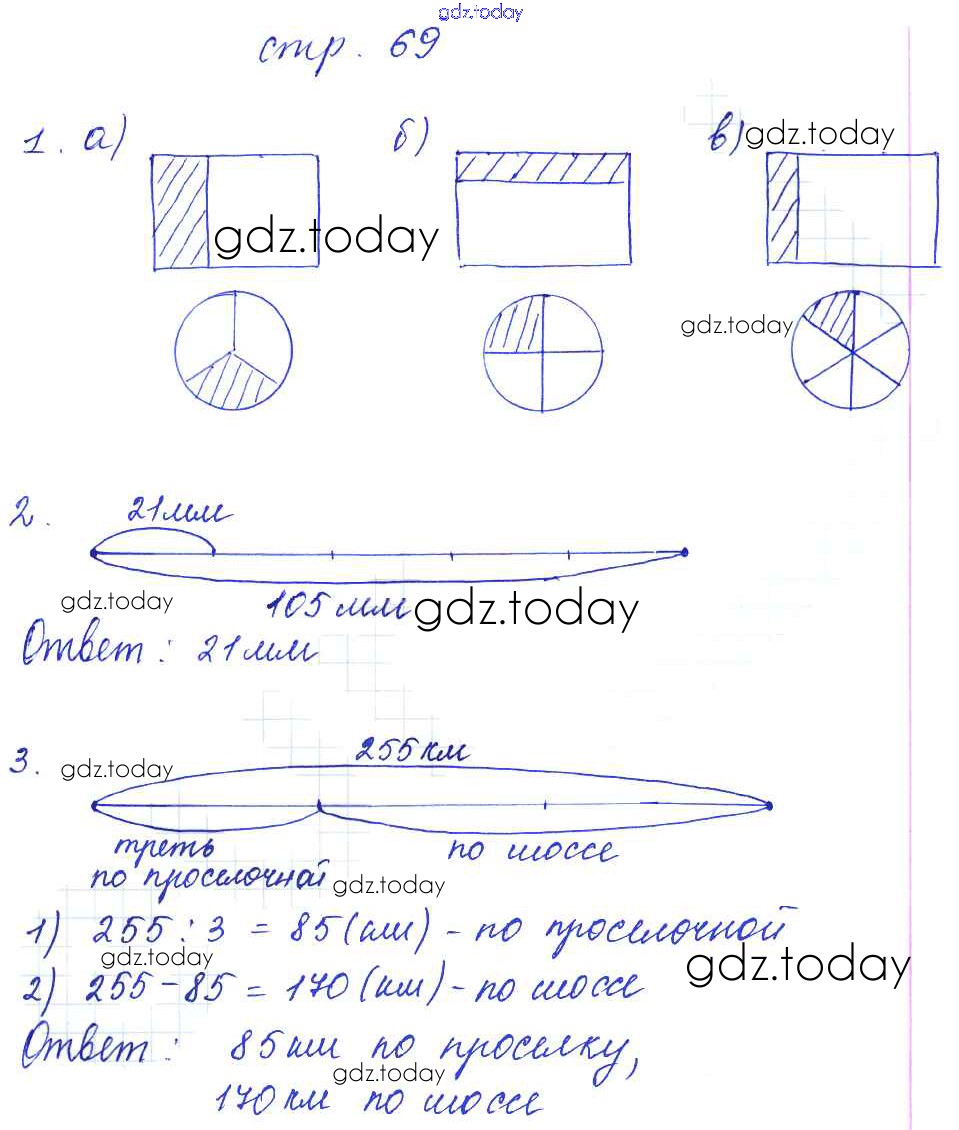 gdz.today
стр. 69
1. а) б) в) gdz.today
gdz.today
gdz.today
2. 21мм
gdz.today
105мм gdz.today
Ответ: 21мм
3. gdz.today 255км
треть по шоссе
по проселочной gdz.today
1) 255 : 3 = 85(км) - по проселочной
gdz.today gdz.today
2) 255 - 85 = 170(км) - по шоссе
Ответ: 85км по проселку,
gdz.today
170км по шоссе